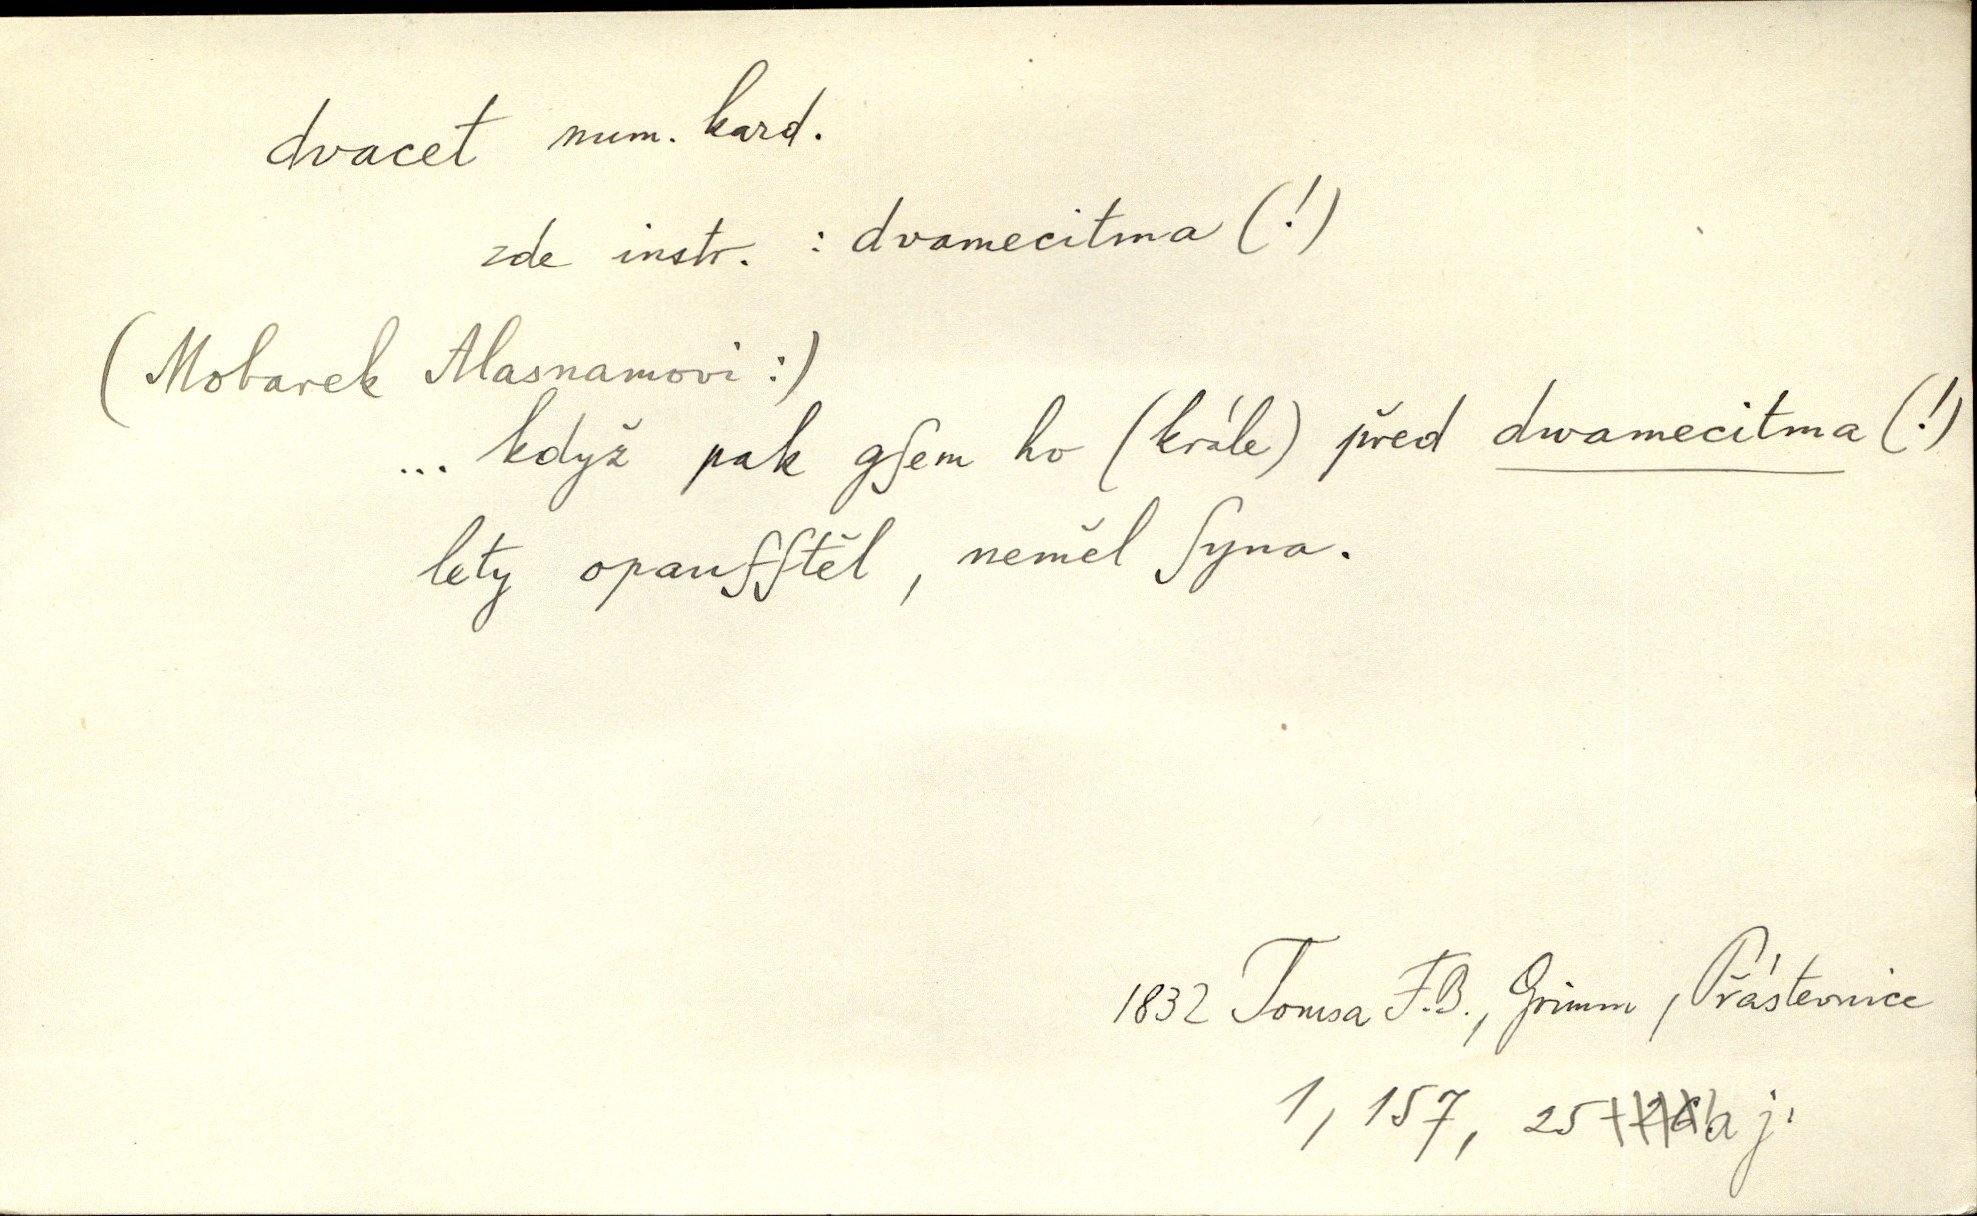 dvacet num. kard.
zde instr. : dvamecitma (!)
(Mobarek Alasnamovi :)
... když pak gſem ho (krále) před dwamecitma (!)
lety opauſſtěl, neměl ſyna.
1832 Tomsa F.B., Grimm, Přástevnice
1, 157, 25 a j.